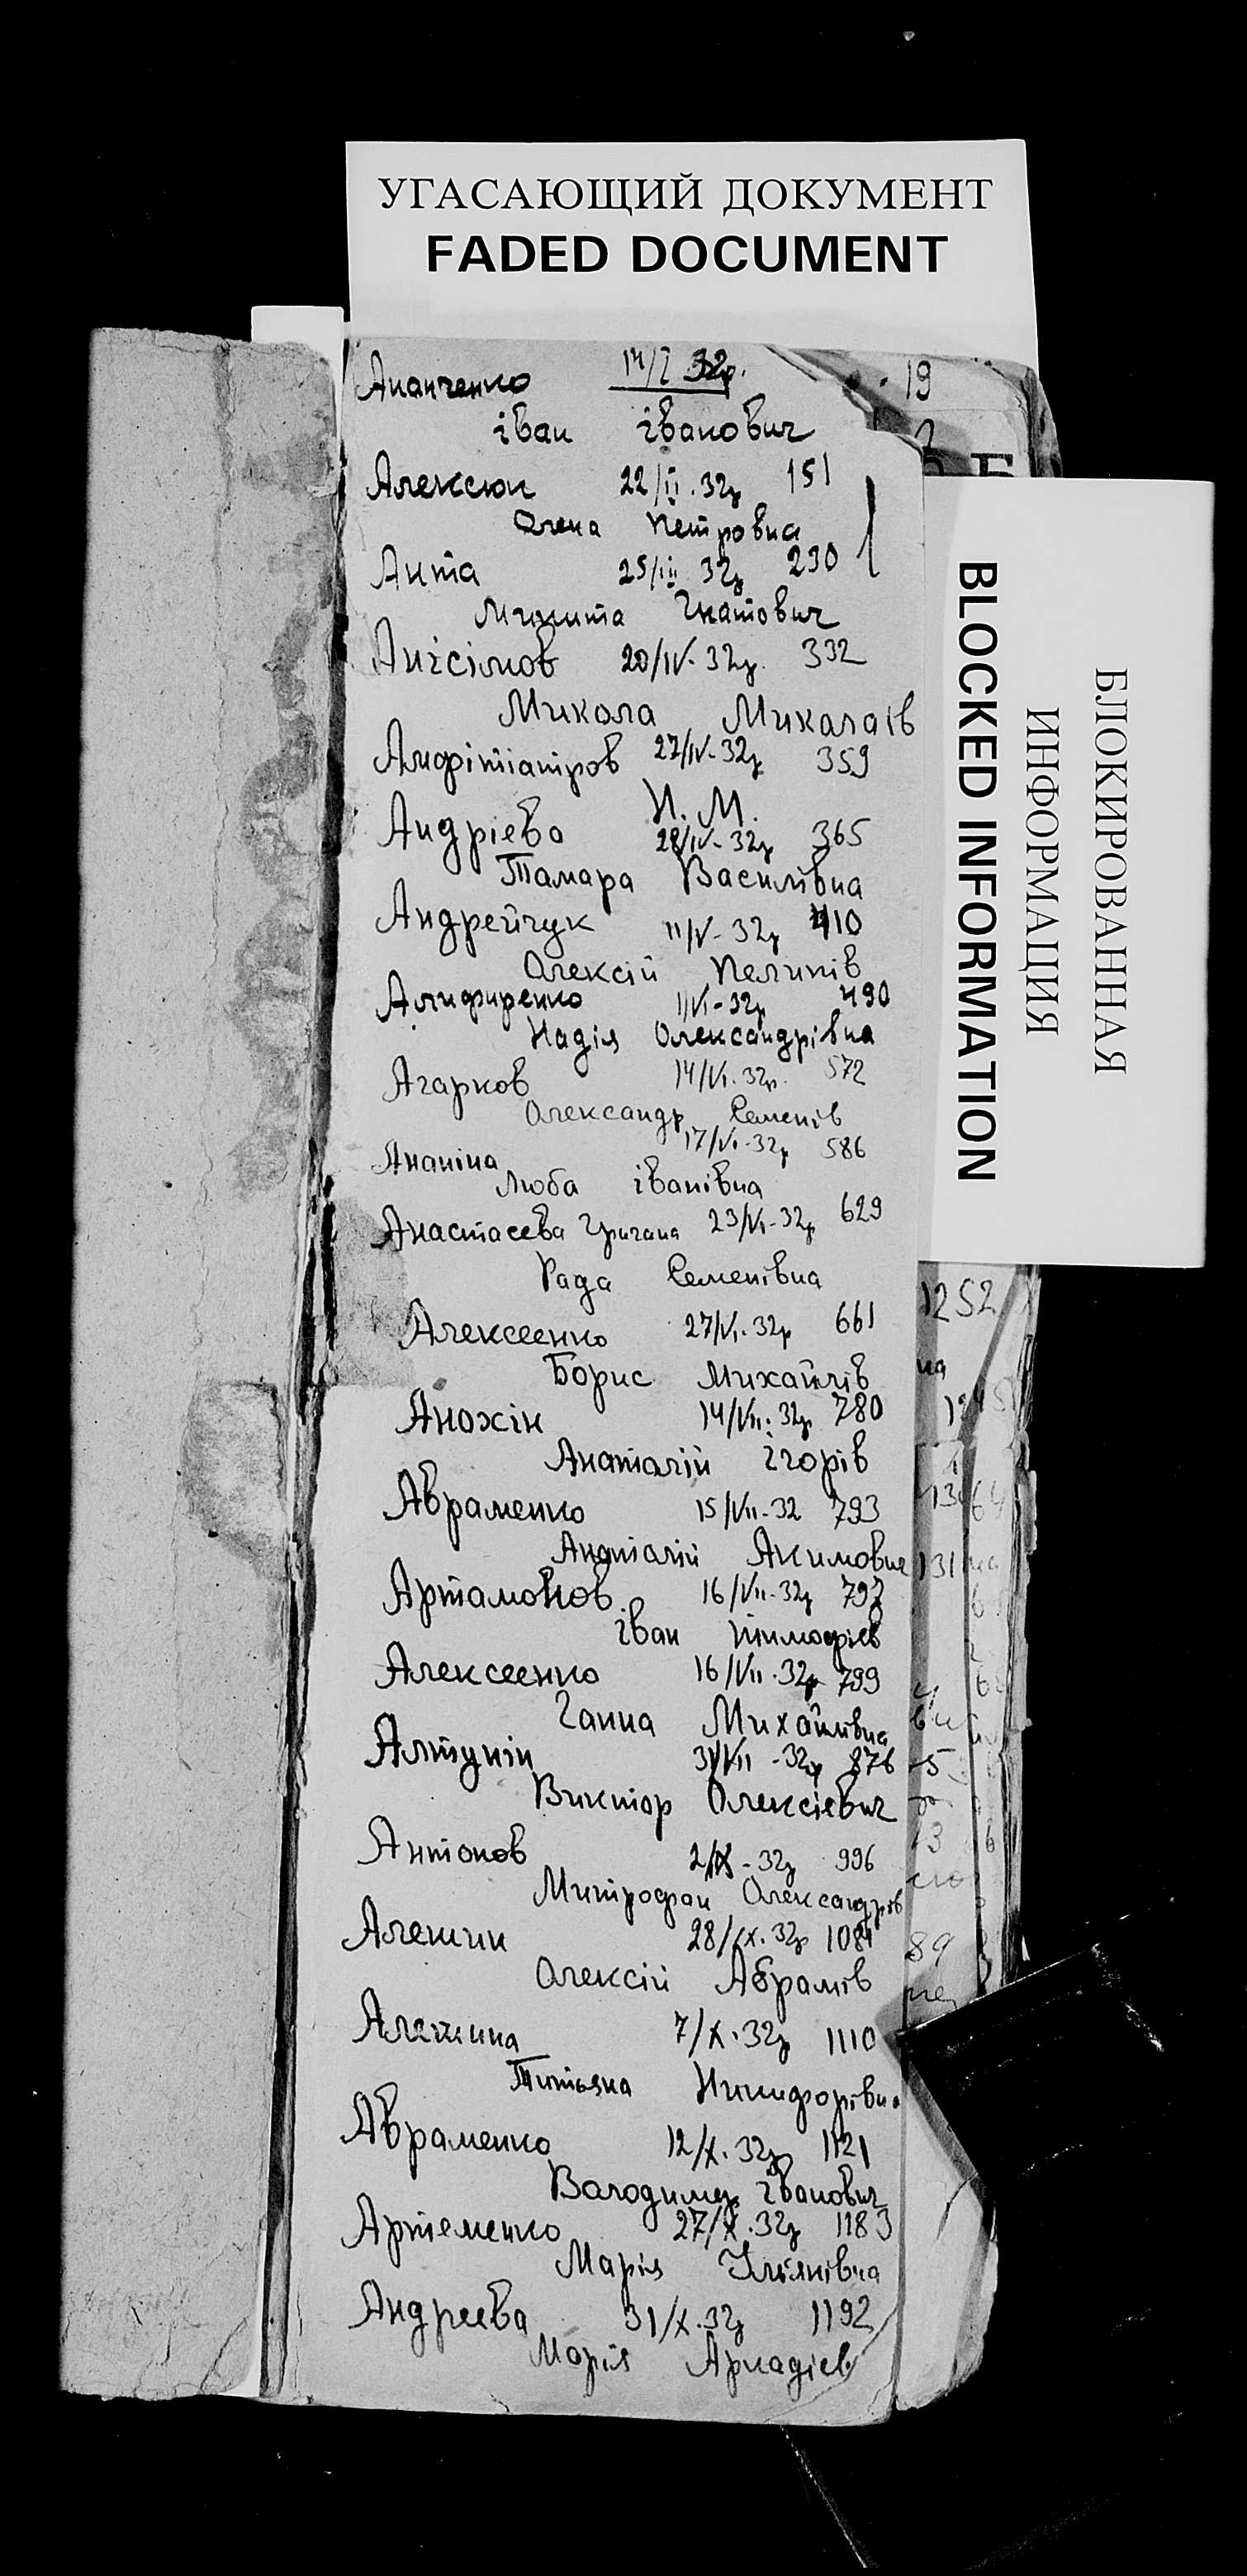 УГАСАЮЩИЙ ДОКУМЕНТ
FADED DOCUMENT
Ананченко 14/I 32р.
іван іванович
Алексюк 22/II.32р 151
Олена Петровна
Анта 25/III 32р 230
Микита Гнатович
Анісімов 20/IV-32р. 332
Микола Микалаїв
Амфітіатров 27/IV-32р 359
Н. М.
Андріева 28/IV-32р 365
Тамара Василівна
Андрейчук 11/V-32р 410
Олексій Пелипів
Алифиренко 1/VI-32р 490
Надія Олександрівна
Агарков 14/VI.32р. 572
Олександр Семенів
Ананіна 17/VI-32р 586
Люба іванівна
Анастасева 23/VI-32р 629
Рада Семенівна
Алексеенко 27/VI.32р 661
Борис Михайлів
Анохін 14/VII.32р 780
Анаталій ігорів
Авраменко 15/VII-32 793
Акимович
Артамонов 16/VII-32р 797
іван Тімофієв
Алексеенко 16/VII.32р 799
Ганна Михайлівна
Алтунін 31/VII-32р 876
Виктор Олексіевич
Антонов 2/IX-32р 996
Митрофан Олександрів
Алешин 28/IX.32р 1084
Олексій Абрамів
Алешина 7/X.32р 1110
Титьяна Никифорівна
Авраменко 12/X.32р 1121
Володимир іванович
Артеменко 27/X.32р 1183
Марія Улянівна
Андреева 31/X.32р 1192
Марія Аркадієв
19
1252
БЛОКИРОВАННАЯ
ИНФОРМАЦИЯ
BLOCKED INFORMATION